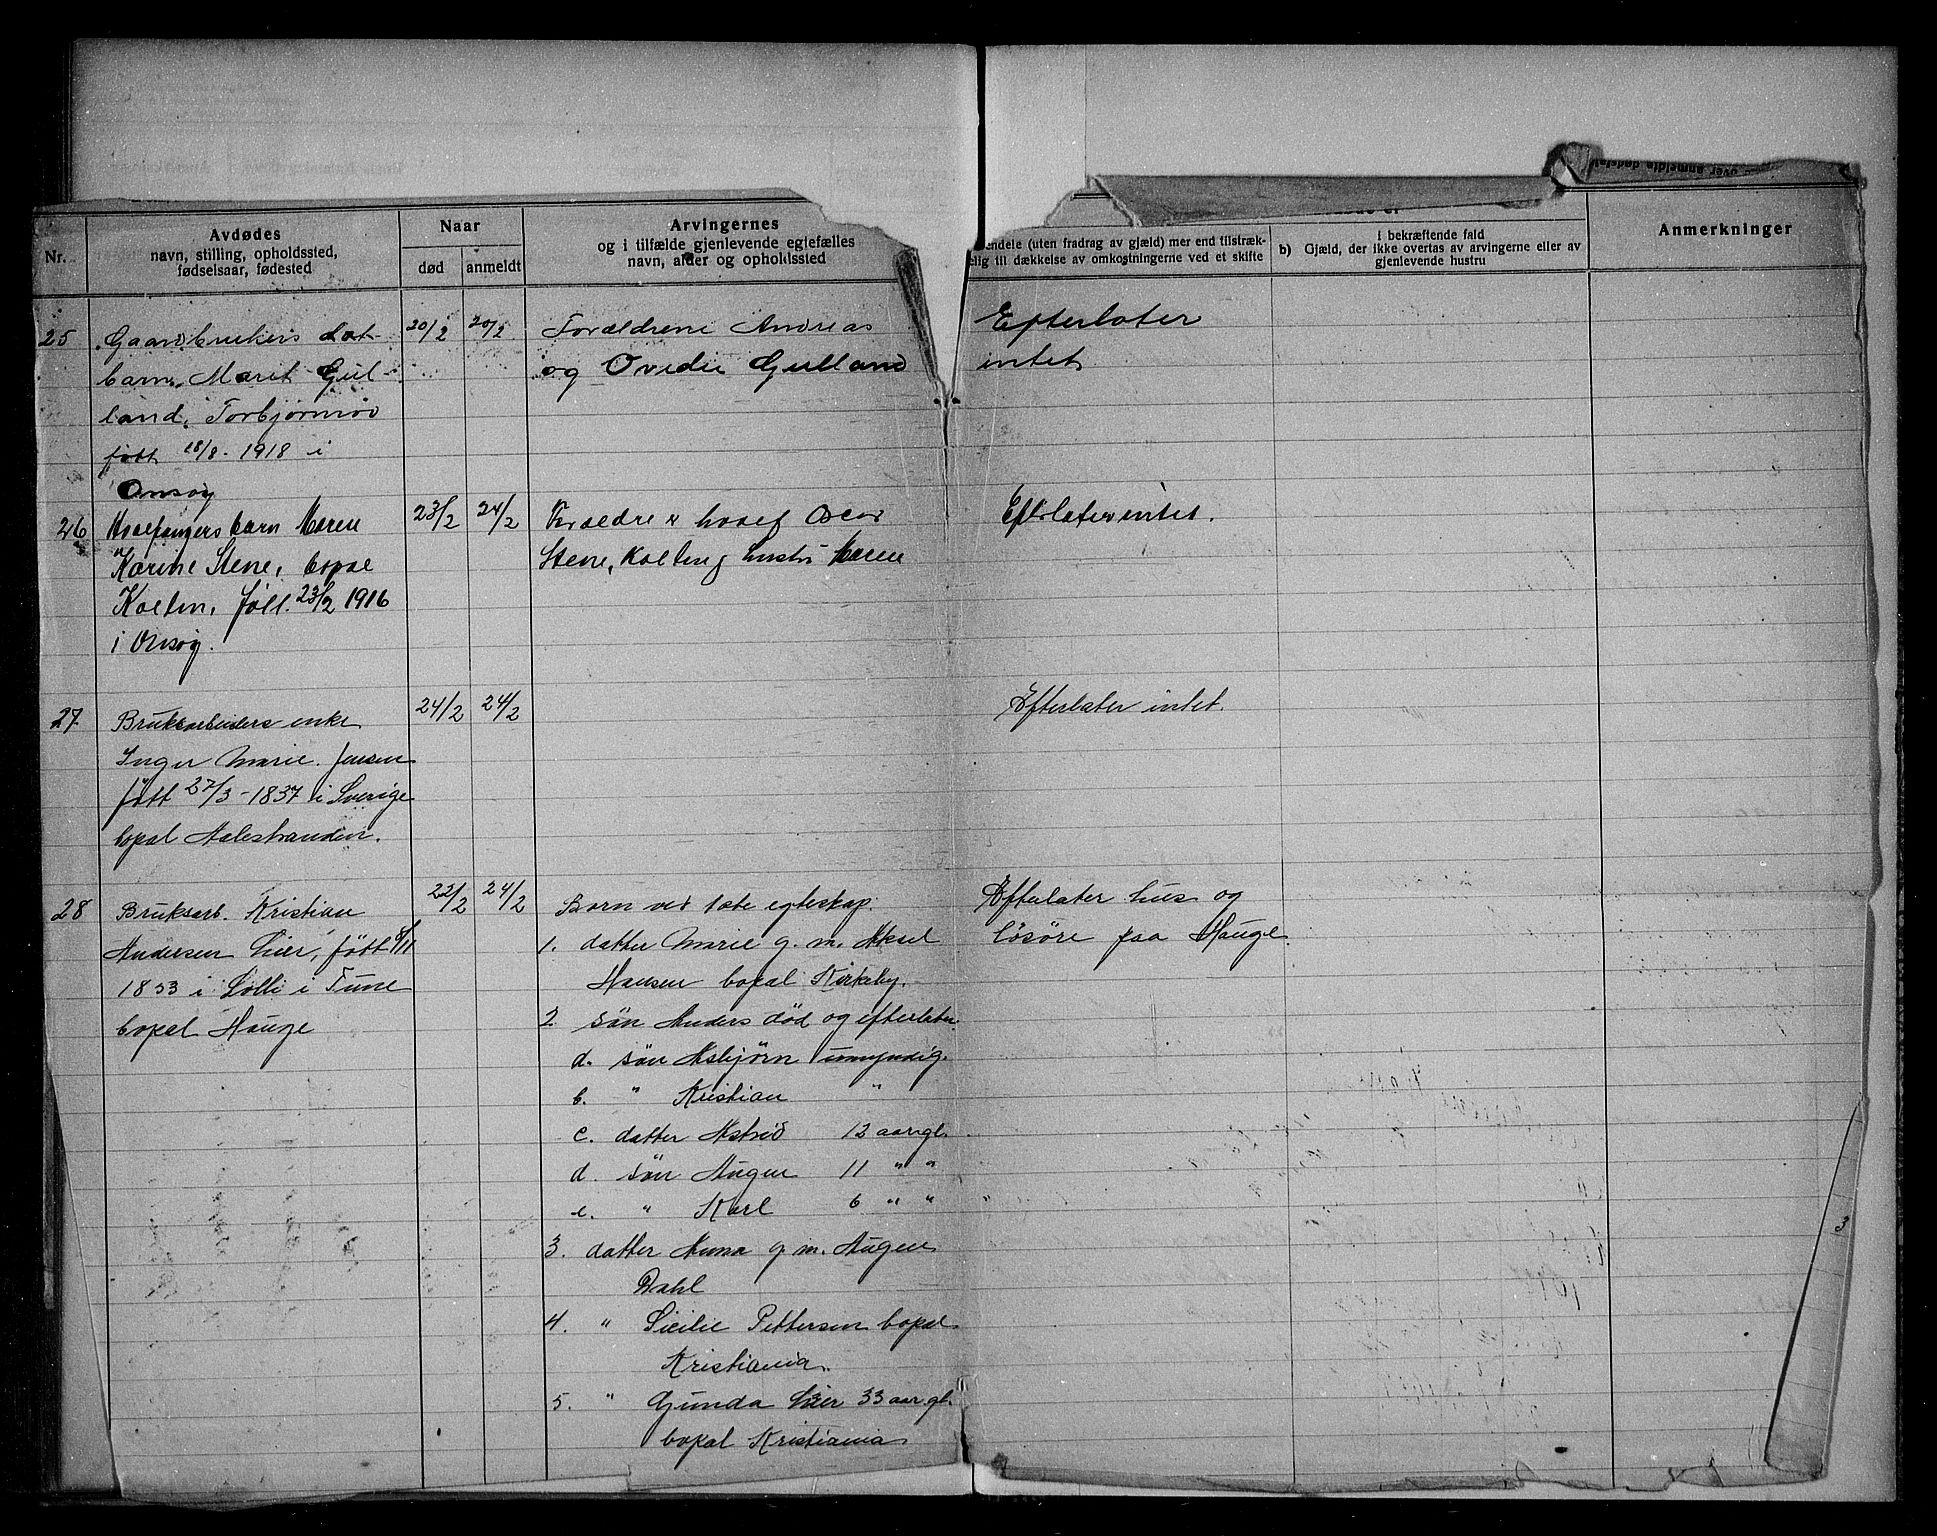 Nr.
Avdødes
navn, stilling, opholdssted,
fødselsaar, fødested
Naar
død
anmeldt
Arvingernes
og i tilfælde gjenlevende egtefælles
navn, alder og opholdssted
endele (uten fradrag av gjæld) mer end tilstræk-
elig til dækkelse av omkostningerne ved et skifte
I bekræftende fald
b) Gjæld, der ikke overtas av arvingerne eller av
gjenlevende hustru
Anmerkninger
over anmeldte dødsfal
25
Gaardbrukers
barn, Marit Gul-
land, Torbjørnrød
født 18/8- 1918 i
Onsøy
20/2
20/2
Forældrene Andreas
og Ovedie Gulland
Efterlater
intet
26
Hvalfangers barn Maren
Karine Stene, bopæl
født. 23/2 1916
i Onsøy.
23/2
24/2
Forældre
Stene, hustru Maren
Efterlater intet.
27
Bruksarbeiders enke
Inger Marie Jensen
født 27/3-1837 i Sverige
bopæl Aalestranden.
24/2
24/2
Efterlater intet.
28
Bruksarb. Kristian
Andersen Lier, født 8/11
1853 i Lolli i Tune
bopæl Hauge
22/2
24/2
Barn ved 1ste egteskap.
1. datter Marie g. m. Aksel
Hansen bopæl Kirkeby.
2. søn Anders død og efterlater
a. søn Asbjørn umyndig.
b. " Kristian "
c. datter Astrid 12 aar gl.
d. søn Augen 11 " "
e. " Karl 6 " " "
3. datter Anna g. m. Augen
Dahl
4. " Sicilie Pettersen bopæl
Kristiania.
5. " Gunda Lier 33 aar gl.
bopæl Kristiania
Efterlater hus og
løsøre paa Hauge.
3